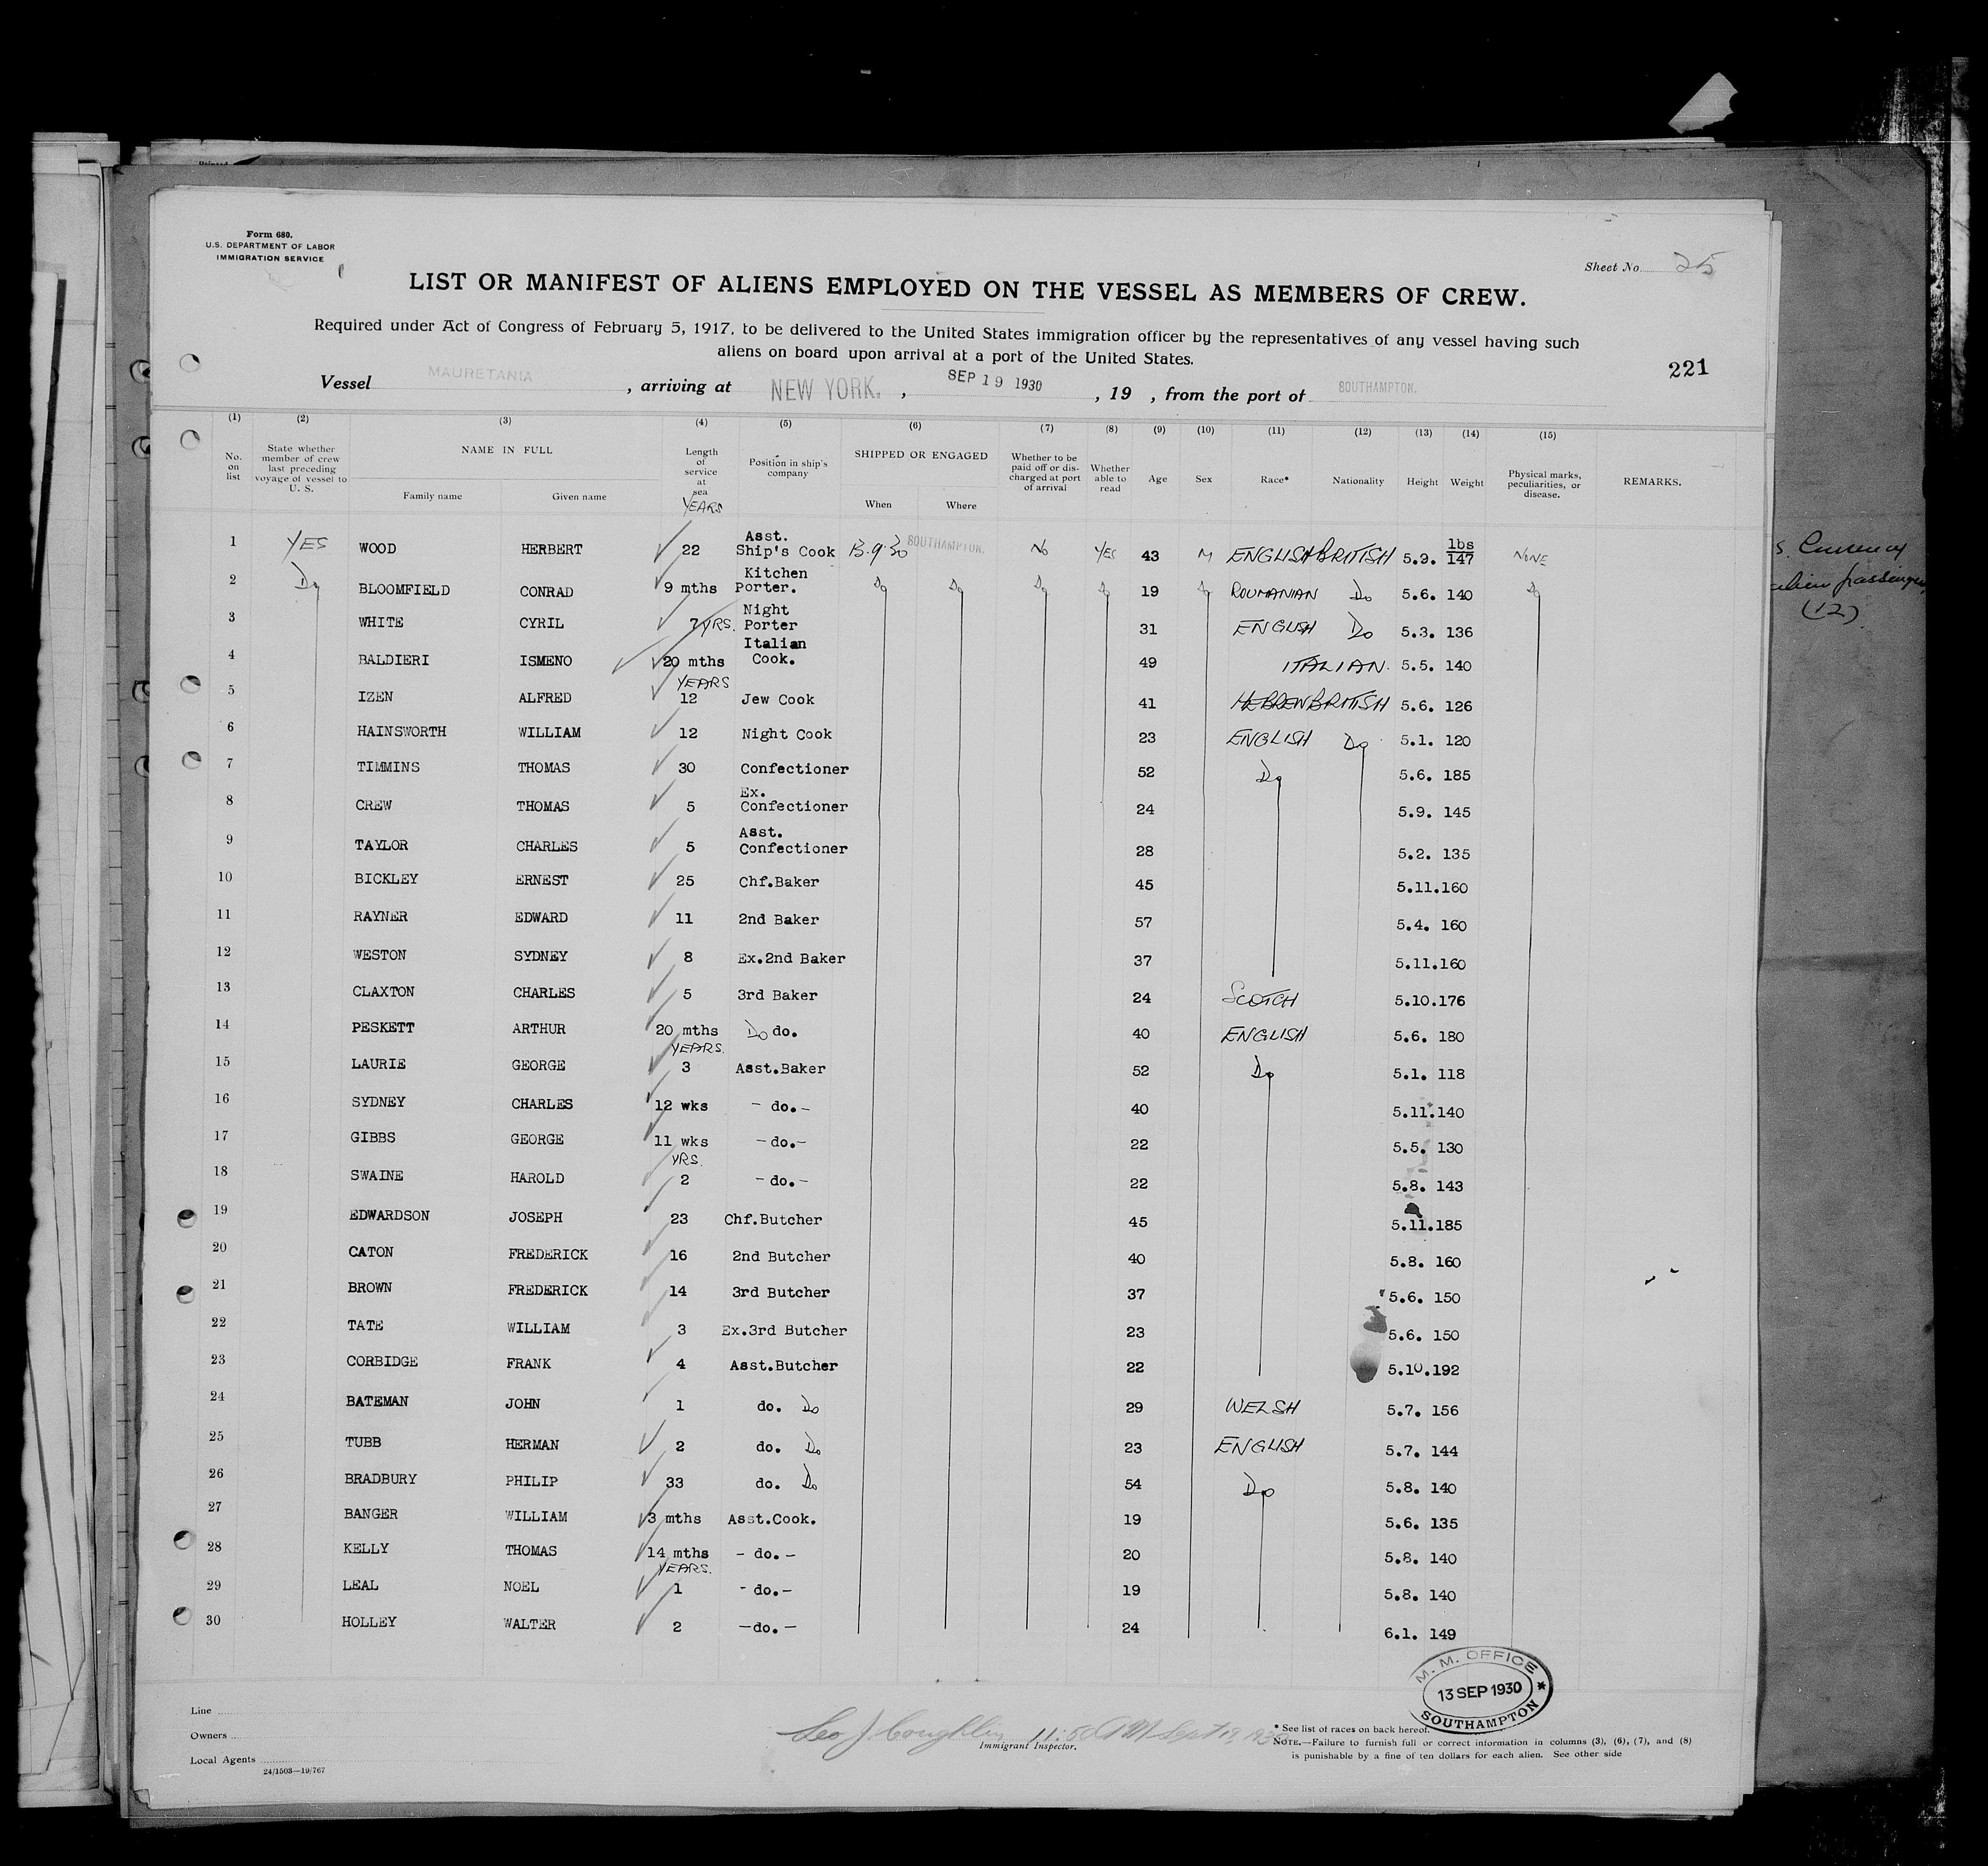 Form 680.
U.S. DEPARTMENT OF LABOR
IMMIGRATION SERVICE
Sheet No. 25
LIST OR MANIFEST OF ALIENS EMPLOYED ON THE VESSEL AS MEMBERS OF CREW.
Required under Act of Congress of February 5, 1917, to be delivered to the United States immigration officer by the representatives of any vessel having such
aliens on board upon arrival at a port of the United States.
221
Vessel MAURETANIA , arriving at NEW YORK. , SEP 19 1930 , 19 , from the port of SOUTHAMPTON.
(1) (2) (3) (4) (5) (6) (7) (8) (9) (10) (11) (12) (13) (14) (15)
No. on list
State whether member of crew last preceding voyage of vessel to U. S.
NAME IN FULL
Family name Given name
Length of service at sea
YEARS
Position in ship's company
SHIPPED OR ENGAGED
When Where
Whether to be paid off or discharged at port of arrival
Whether able to read
Age Sex Race* Nationality Height Weight
Physical marks, peculiarities, or disease.
REMARKS.
1 YES WOOD HERBERT 22 Asst. Ship's Cook 13.9.30 SOUTHAMPTON. No YES 43 M ENGLISH BRITISH 5.9. lbs 147 NONE
2 Do BLOOMFIELD CONRAD 9 mths Kitchen Porter. Do Do Do Do 19 Do ROUMANIAN Do 5.6. 140 Do
3 WHITE CYRIL 7 YRS. Night Porter 31 ENGLISH Do 5.3. 136
4 BALDIERI ISMENO 20 mths Italian Cook. 49 ITALIAN. 5.5. 140
5 IZEN ALFRED YEARS 12 Jew Cook 41 HEBREW BRITISH 5.6. 126
6 HAINSWORTH WILLIAM 12 Night Cook 23 ENGLISH Do 5.1. 120
7 TIMMINS THOMAS 30 Confectioner 52 Do 5.6. 185
8 CREW THOMAS 5 Ex. Confectioner 24 5.9. 145
9 TAYLOR CHARLES 5 Asst. Confectioner 28 5.2. 135
10 BICKLEY ERNEST 25 Chf.Baker 45 5.11.160
11 RAYNER EDWARD 11 2nd Baker 57 5.4. 160
12 WESTON SYDNEY 8 Ex.2nd Baker 37 5.11.160
13 CLAXTON CHARLES 5 3rd Baker 24 SCOTCH 5.10.176
14 PESKETT ARTHUR 20 mths Do do. 40 ENGLISH 5.6. 180
15 LAURIE GEORGE YEARS. 3 Asst.Baker 52 Do 5.1. 118
16 SYDNEY CHARLES 12 wks - do.- 40 5.11.140
17 GIBBS GEORGE 11 wks - do.- 22 5.5. 130
18 SWAINE HAROLD YRS. 2 - do.- 22 5.8. 143
19 EDWARDSON JOSEPH 23 Chf.Butcher 45 5.11.185
20 CATON FREDERICK 16 2nd Butcher 40 5.8. 160
21 BROWN FREDERICK 14 3rd Butcher 37 5.6. 150
22 TATE WILLIAM 3 Ex.3rd Butcher 23 5.6. 150
23 CORBIDGE FRANK 4 Asst.Butcher 22 5.10.192
24 BATEMAN JOHN 1 do. Do 29 WELSH 5.7. 156
25 TUBB HERMAN 2 do. Do 23 ENGLISH 5.7. 144
26 BRADBURY PHILIP 33 do. Do 54 Do 5.8. 140
27 BANGER WILLIAM 3 mths Asst.Cook. 19 5.6. 135
28 KELLY THOMAS 14 mths - do.- 20 5.8. 140
29 LEAL NOEL YEARS. 1 - do.- 19 5.8. 140
30 HOLLEY WALTER 2 -do.- 24 6.1. 149
s. Currency
alien passenger
(12)
M. M. OFFICE
13 SEP 1930
SOUTHAMPTON
Line
Owners
Local Agents
24/1503—19/767
Geo J Coughlin 11:50 AM Sept 19, 1930
Immigrant Inspector.
* See list of races on back hereof.
NOTE.—Failure to furnish full or correct information in columns (3), (6), (7), and (8)
is punishable by a fine of ten dollars for each alien. See other side